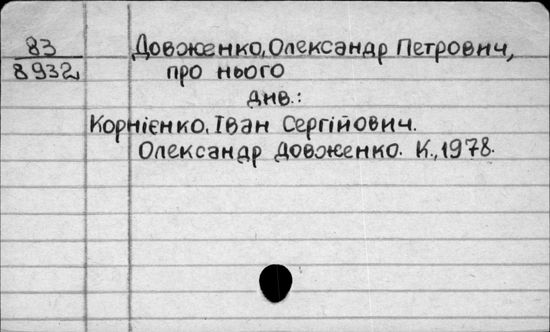 83 Довженко, Олександр Петрович,
8932 про нього
див.:
Корнієнко, Іван Сергійович.
Олександр Довженко. К., 1978.